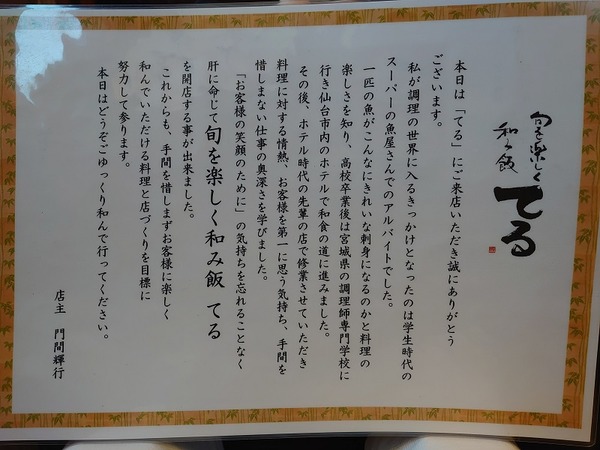 旬を楽しく
和み飯
てる
本日は「てる」にご来店いただき誠にありがとう
ございます。
私が調理の世界に入るきっかけとなったのは学生時代の
スーパーの魚屋さんでのアルバイトでした。
一匹の魚がこんなにきれいな刺身になるのかと料理の
楽しさを知り、高校卒業後は宮城県の調理師専門学校に
行き仙台市内のホテルで和食の道に進みました。
その後、ホテル時代の先輩の店で修業させていただき
料理に対する情熱、お客様を第一に思う気持ち、手間を
惜しまない仕事の奥深さを学びました。
「お客様の笑顔のために」の気持ちを忘れることなく
肝に命じて旬を楽しく和み飯 てる
を開店する事が出来ました。
これからも、手間を惜しまずお客様に楽しく
和んでいただける料理と店づくりを目標に
努力して参ります。
本日はどうぞごゆっくり和んで行ってください。
店主 門間輝行